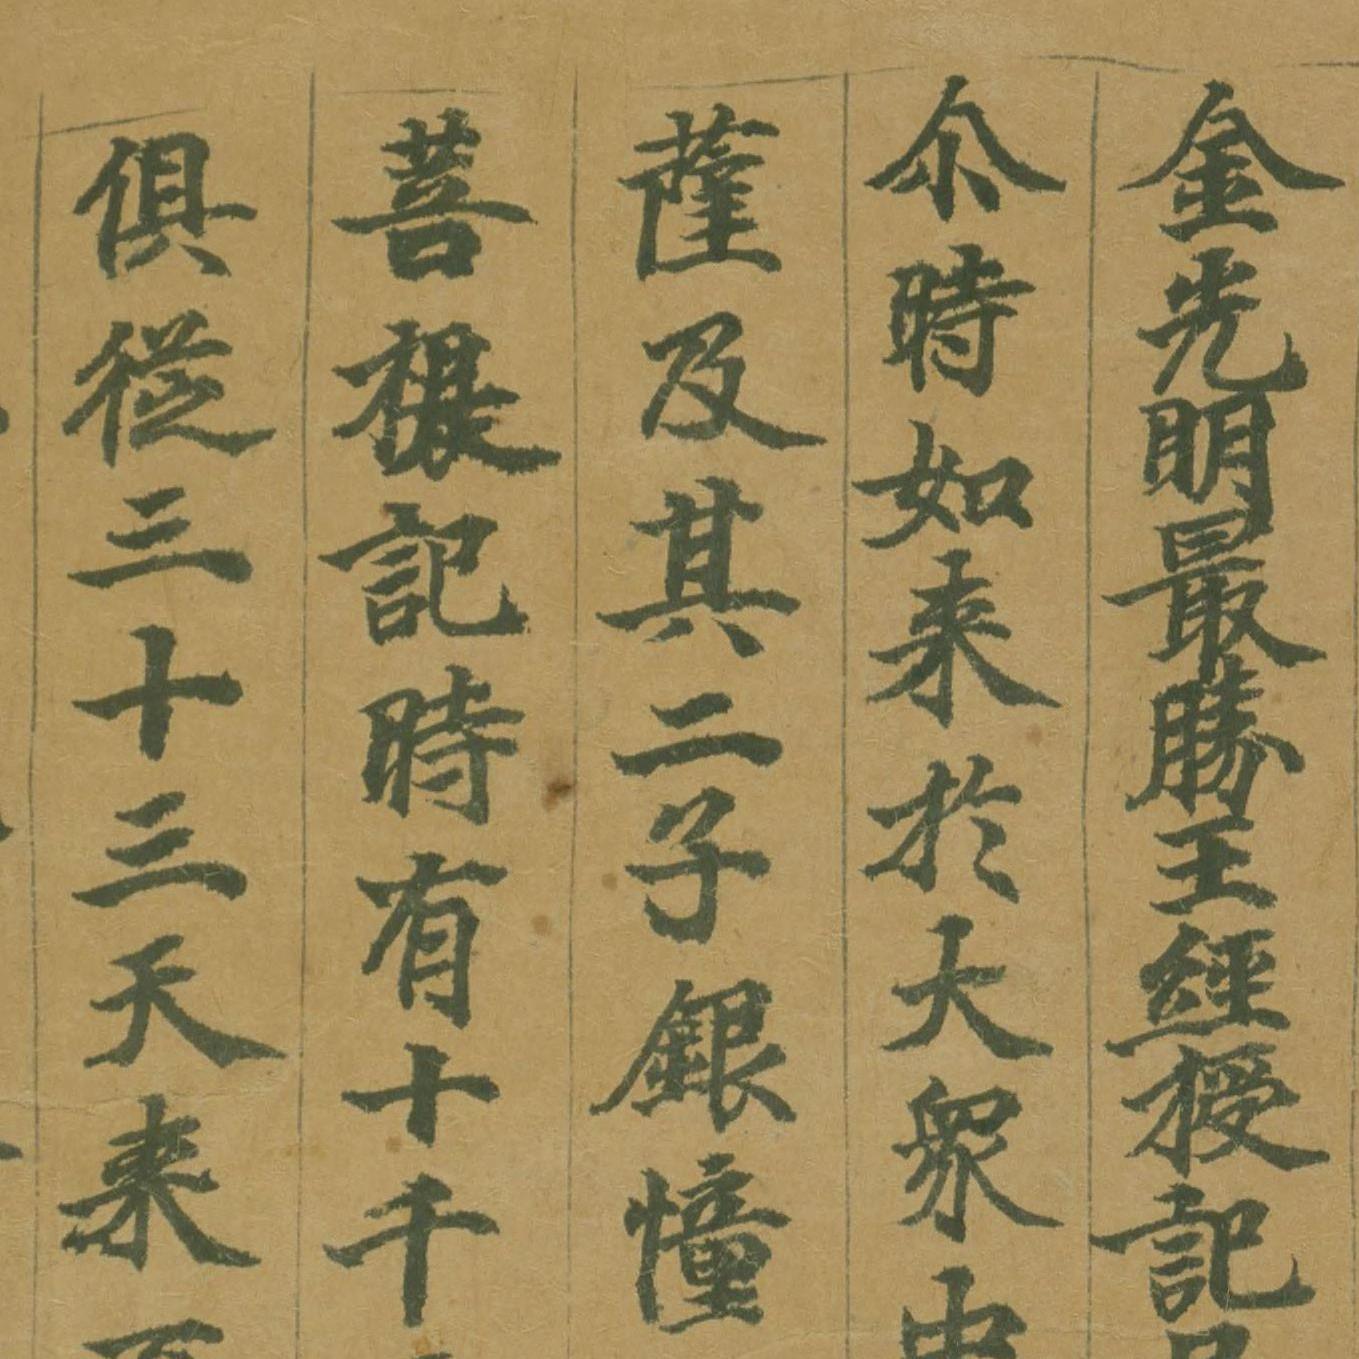 金光明最勝王經授記品
尒時如来於大衆中
薩及其二子銀憧
菩提記時有十千
俱從三十三天来至